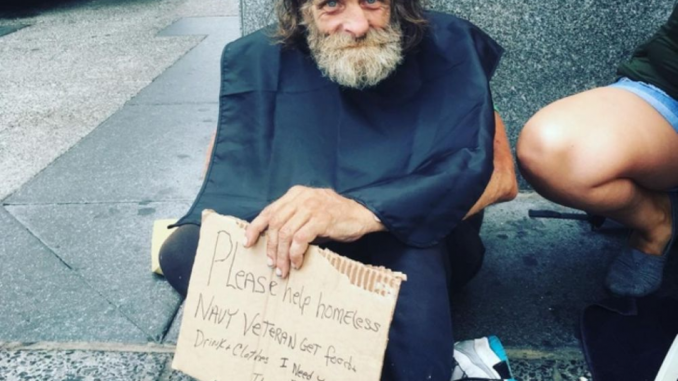 PLease help homeless
NAVY VETERAN GET food
Drink & Clothes I Need